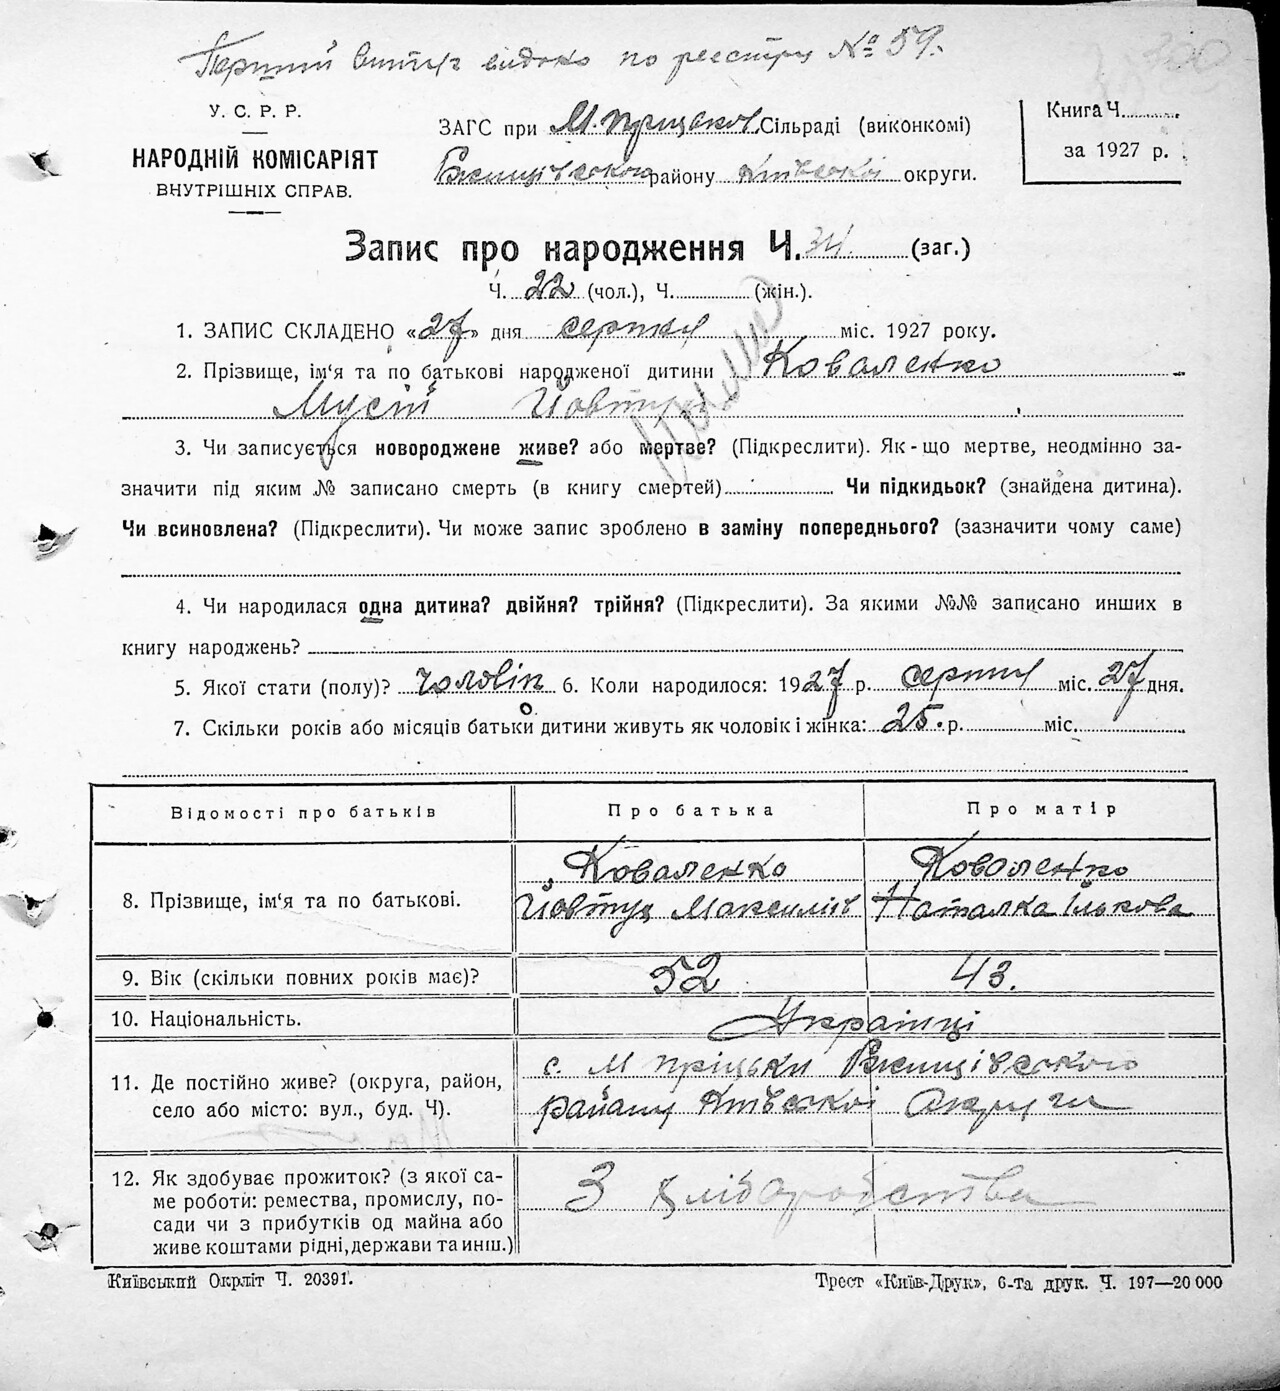 Перший витяг видано по реєстру № 59.
У. С. Р. Р.
НАРОДНІЙ КОМІСАРІЯТ
ВНУТРІШНІХ СПРАВ.
ЗАГС при М. Прицьков. Сільраді (виконкомі)
Ржищівського району Київської округи.
Книга Ч.
за 1927 р.
Запис про народження Ч. 34. (заг.)
Ч. 22 (чол.), Ч. (жін.).
1. ЗАПИС СКЛАДЕНО «27» дня серпня міс. 1927 року.
2. Прізвище, ім‘я та по батькові народженої дитини Коваленко
Мусій Йовтух
3. Чи записується новороджене живе? або мертве? (Підкреслити). Як-що мертве, неодмінно за-
значити під яким № записано смерть (в книгу смертей) Чи підкидьок? (знайдена дитина).
Чи всиновлена? (Підкреслити). Чи може запис зроблено в заміну попереднього? (зазначити чому саме)
4. Чи народилася одна дитина? двійня? трійня? (Підкреслити). За якими №№ записано инших в
книгу народжень?
5. Якої стати (полу)? чоловіч 6. Коли народилося: 1927 р. серпня міс. 27 дня.
7. Скільки років або місяців батьки дитини живуть як чоловік і жінка: 25. р. міс.
Відомості про батьків Про батька Про матір
8. Прізвище, ім‘я та по батькові.
Коваленко Коваленко
Йовтух Максимів Наталка Ількова
9. Вік (скільки повних років має)? 52 43.
10. Національність. Українці
11. Де постійно живе? (округа, район,
село або місто: вул., буд. Ч).
с. М Пріцьки Ржищівського
району Київської Округи
12. Як здобуває прожиток? (з якої са-
ме роботи: ремества, промислу, по-
сади чи з прибутків од майна або
живе коштами рідні, держави та инш.)
З хліборобства
Київський Окрліт Ч. 20391.
Трест «Київ-Друк», 6-та друк. Ч. 197—20 000